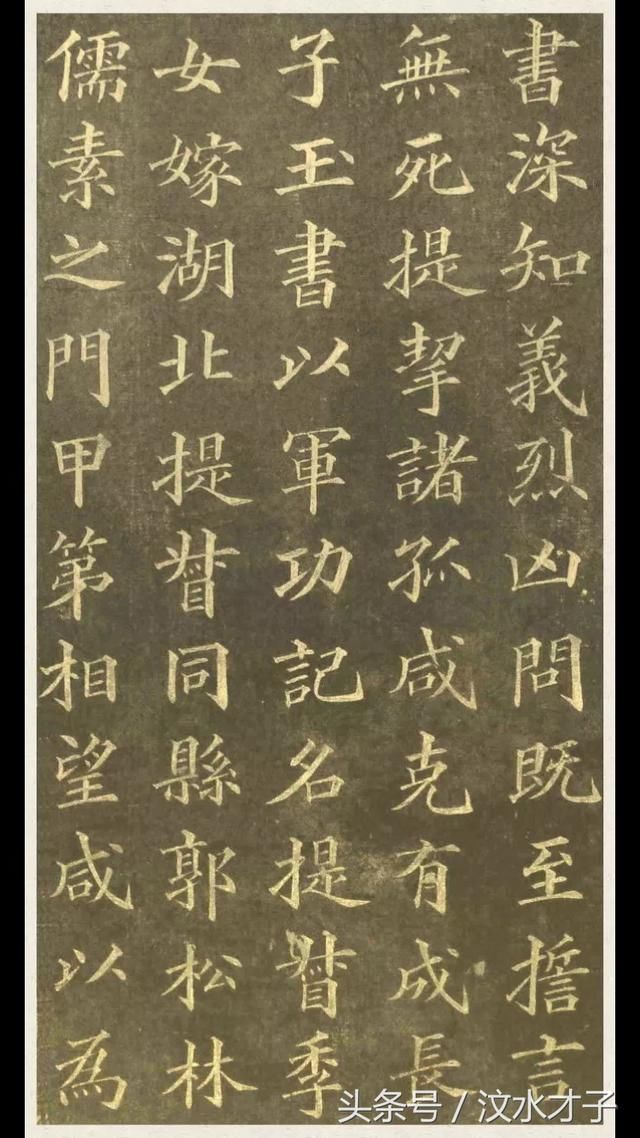 書深知義烈凶問既至擔言
無死提挈諸孤咸克有成長
子玉書以軍功記名提督季
女嫁湖北提督同縣郭松林
儒素之門甲第相望咸以為
头条号 / 汶水才子